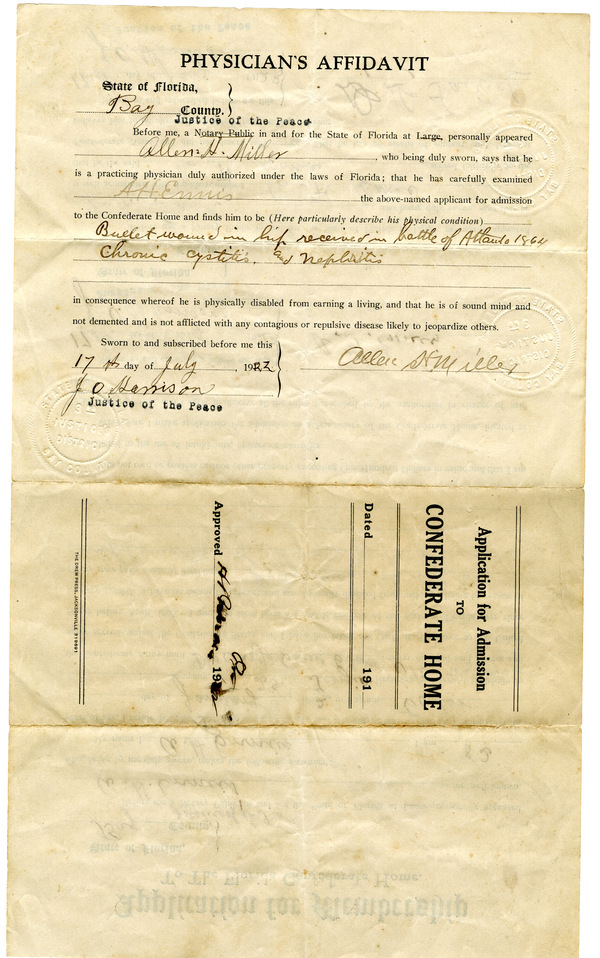 PHYSICIAN'S AFFIDAVIT
State of Florida,
Bay County.
Justice of the Peace
Before me, a Notary Public in and for the State of Florida at Large, personally appeared
Allen H. Miller, who being duly sworn, says that he
is a practicing physician duly authorized under the laws of Florida; that he has carefully examined
A H Ennis the above-named applicant for admission
to the Confederate Home and finds him to be (Here particularly describe his physical condition)
Bullet wound in hip received in battle of Atlanta 1864
Chronic cystitis. and Nephritis
in consequence whereof he is physically disabled from earning a living, and that he is of sound mind and
not demented and is not afflicted with any contagious or repulsive disease likely to jeopardize others.
Sworn to and subscribed before me this
17 th day of July, 1922
Allen H Miller
J O Harrison
Justice of the Peace
Application for Admission
TO
CONFEDERATE HOME
Dated 191
Approved 19
THE DREW PRESS, JACKSONVILLE
To The Florida Confederate Home.
Application for Membership